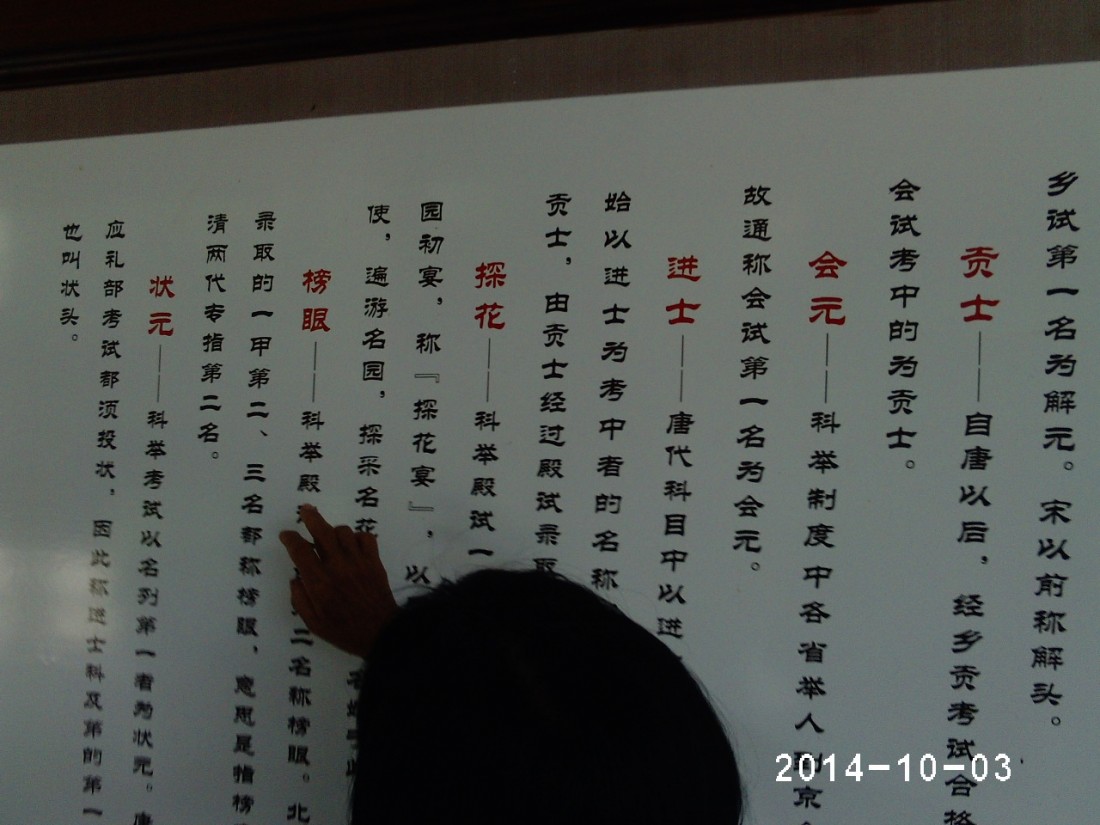 乡试第一名为解元。宋以前称解头。
贡士——自唐以后,经乡贡考试合格
会试考中的为贡士。
会元——科举制度中各省举人到京
故通称会试第一名为会元。
进士——唐代科目中以进
始以进士为考中者的名称
贡士,由贡士经过殿试录取
探花——科举殿试一
园初宴,称『探花宴』,以
使,遍游名园,探采名花
榜眼——科举殿 二名称榜眼。北
录取的一甲第二、三名都称榜眼,意思是指榜
清两代专指第二名。
状元——科举考试以名列第一者为状元。唐
应礼部考试都须投状,因此称进士科及第的第一
也叫状头。
2014-10-03